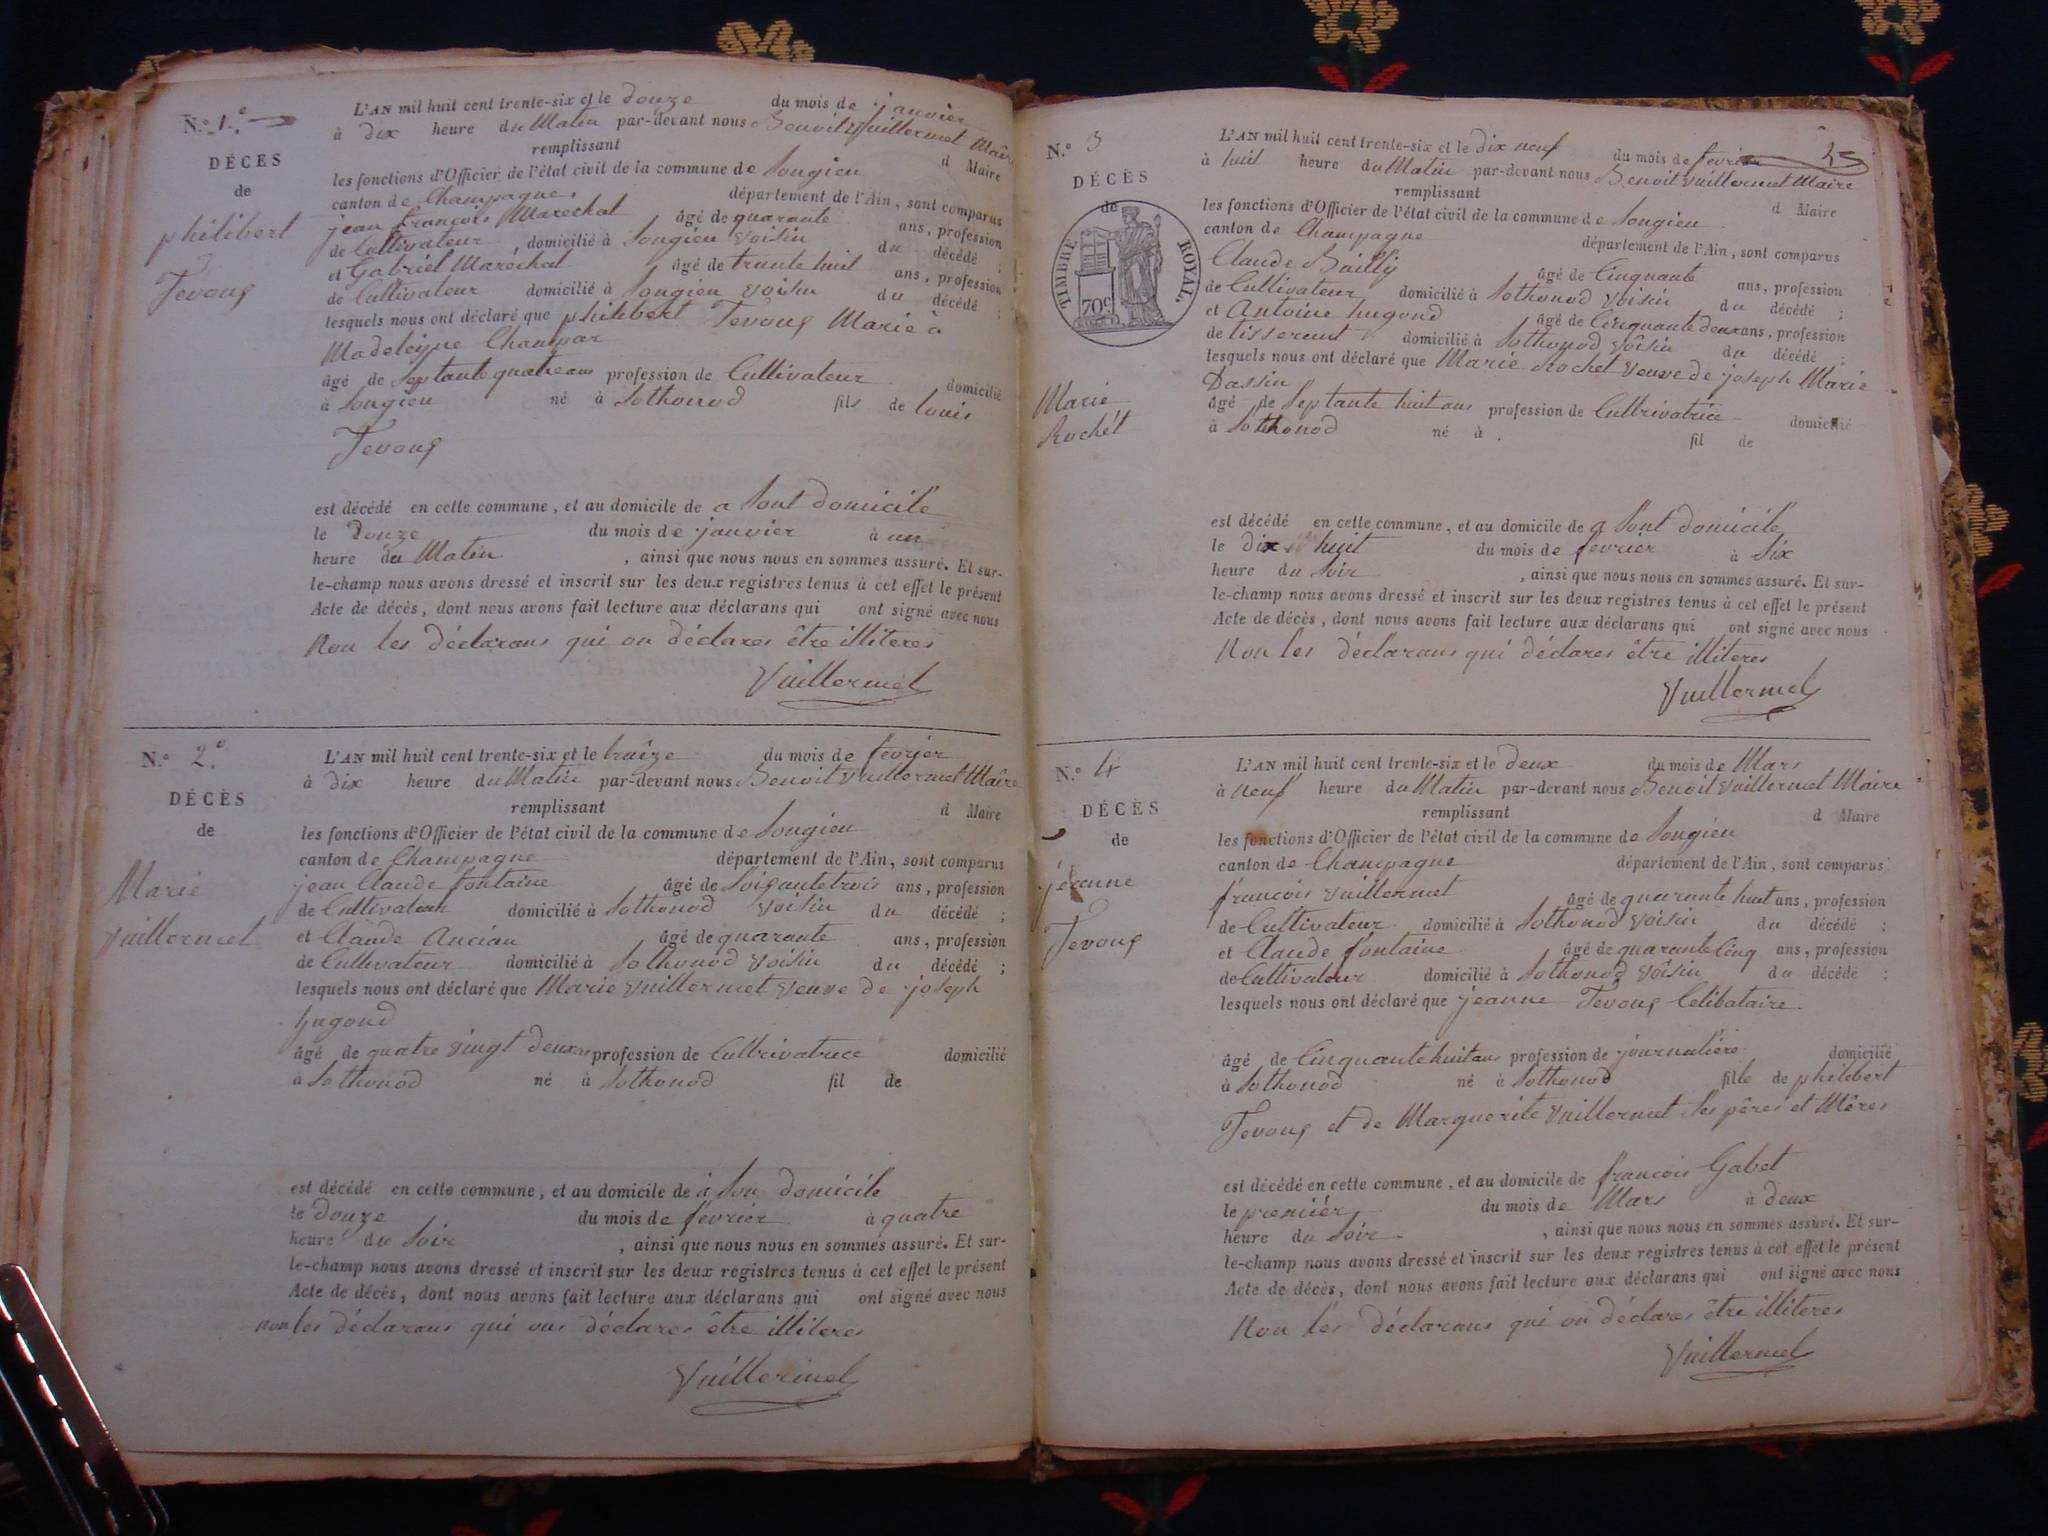 N.° 1.°
DÉCÈS
de
philibert
Tevoug
L'AN mil huit cent trente-six et le douze du mois de janvier
à dix heure du Matin par-devant nous Benoit Vuillermet Maire
remplissant d Maire
les fonctions d'Officier de l'état civil de la commune de Songieu
canton de Champagne, département de l'Ain, sont comparus
jean françois Marechal âgé de quarante ans, profession
de Cultivateur, domicilié à Songieu voisin du décédé ;
et Gabriel Maréchal âgé de trante huit ans, profession
de Cultivateur domicilié à Songieu voisin du décédé ;
lesquels nous ont déclaré que philibert Tevoug Marié à
Madeleine Champar
âgé de Septante quatre ans profession de Cultivateur domicilié
à Songieu né à Sothonod fils de louis
Tevoug
est décédé en cette commune, et au domicile de a Sont domicile
le douze du mois de janvier à un
heure du Matin, ainsi que nous nous en sommes assuré. Et sur-
le-champ nous avons dressé et inscrit sur les deux registres tenus à cet effet le présent
Acte de décès, dont nous avons fait lecture aux déclarans qui ont signé avec nous
Non les déclarans qui on déclares être illiteres
Vuillermet
N.° 2.°
DÉCÈS
de
Marie
Vuillermet
L'AN mil huit cent trente-six et le traize du mois de fevrier
à dix heure du Matin par-devant nous Benoit Vuillermet Maire
remplissant d Maire
les fonctions d'Officier de l'état civil de la commune de Songieu
canton de Champagne département de l'Ain, sont comparus
jean Claude fontaine âgé de Soisante trois ans, profession
de Cultivateur domicilié à Sothonod voisin du décédé ;
et Claude Ancian âgé de quarante ans, profession
de Cultivateur domicilié à Sothonod voisin du décédé ;
lesquels nous ont déclaré que Marie Vuillermet veuve de joseph
hugond
âgé de quatre vingt deux ans profession de Cultrivatrice domicilié
à Sothonod né à Sothonod fil de
est décédé en cette commune, et au domicile de à Son domicile
le douze du mois de fevrier à quatre
heure du Soir, ainsi que nous nous en sommes assuré. Et sur-
le-champ nous avons dressé et inscrit sur les deux registres tenus à cet effet le présent
Acte de décès, dont nous avons fait lecture aux déclarans qui ont signé avec nous
non les déclarans qui ons déclares être illiteres
Vuillermet
25
N.° 3
DÉCÈS
de
TIMBRE ROYAL.
70c.
Marie
Rochét
L'AN mil huit cent trente-six et le dix neuf du mois de fevrier
à huit heure du Matin par-devant nous Benoit Vuillermet Maire
remplissant d Maire
les fonctions d'Officier de l'état civil de la commune de Songieu
canton de Champagne département de l'Ain, sont comparus
Claude Bailly âgé de Cinquante ans, profession
de Cultivateur domicilié à Sothonod voisin du décédé ;
et Antoine hugond âgé de Cinquante deux ans, profession
de tisserent domicilié à Sothonod voisin du décédé ;
lesquels nous ont déclaré que Marie Rochet veuve de joseph Marie
Dassin
âgé de Septante huit ans profession de Cultrivatrice domicilié
à Sothonod né à fil de
est décédé en cette commune, et au domicile de a Sont domicile
le dix huit du mois de fevrier à Six
heure du Soir, ainsi que nous nous en sommes assuré. Et sur-
le-champ nous avons dressé et inscrit sur les deux registres tenus à cet effet le présent
Acte de décès, dont nous avons fait lecture aux déclarans qui ont signé avec nous
Non les déclarans qui déclares être illiteres
Vuillermet
N.° 4
DÉCÈS
de
jéanne
Tevoug
L'AN mil huit cent trente-six et le deux du mois de Mars
à neuf heure du Matin par-devant nous Benoit Vuillermet Maire
remplissant d Maire
les fonctions d'Officier de l'état civil de la commune de Songieu
canton de Champagne département de l'Ain, sont comparus
françois Vuillermet âgé de quarante huit ans, profession
de Cultivateur domicilié à Sothonod voisin du décédé ;
et Claude fontaine âgé de quarante Cinq ans, profession
de Cultivateur domicilié à Sothonod voisin du décédé ;
lesquels nous ont déclaré que jeanne Tevoug Célibataire
âgé de Cinquante huit ans profession de journalière domicilié
à Sothonod né à Sothonod fille de philibert
Tevoug et de Marguerite Vuillermet Ses pères et Mères
est décédé en cette commune, et au domicile de françois Gabet
le premièr du mois de Mars à deux
heure du Soir, ainsi que nous nous en sommes assuré. Et sur-
le-champ nous avons dressé et inscrit sur les deux registres tenus à cet effet le présent
Acte de décès, dont nous avons fait lecture aux déclarans qui ont signé avec nous
Non les déclarans qui on déclares être illiteres
Vuillermet